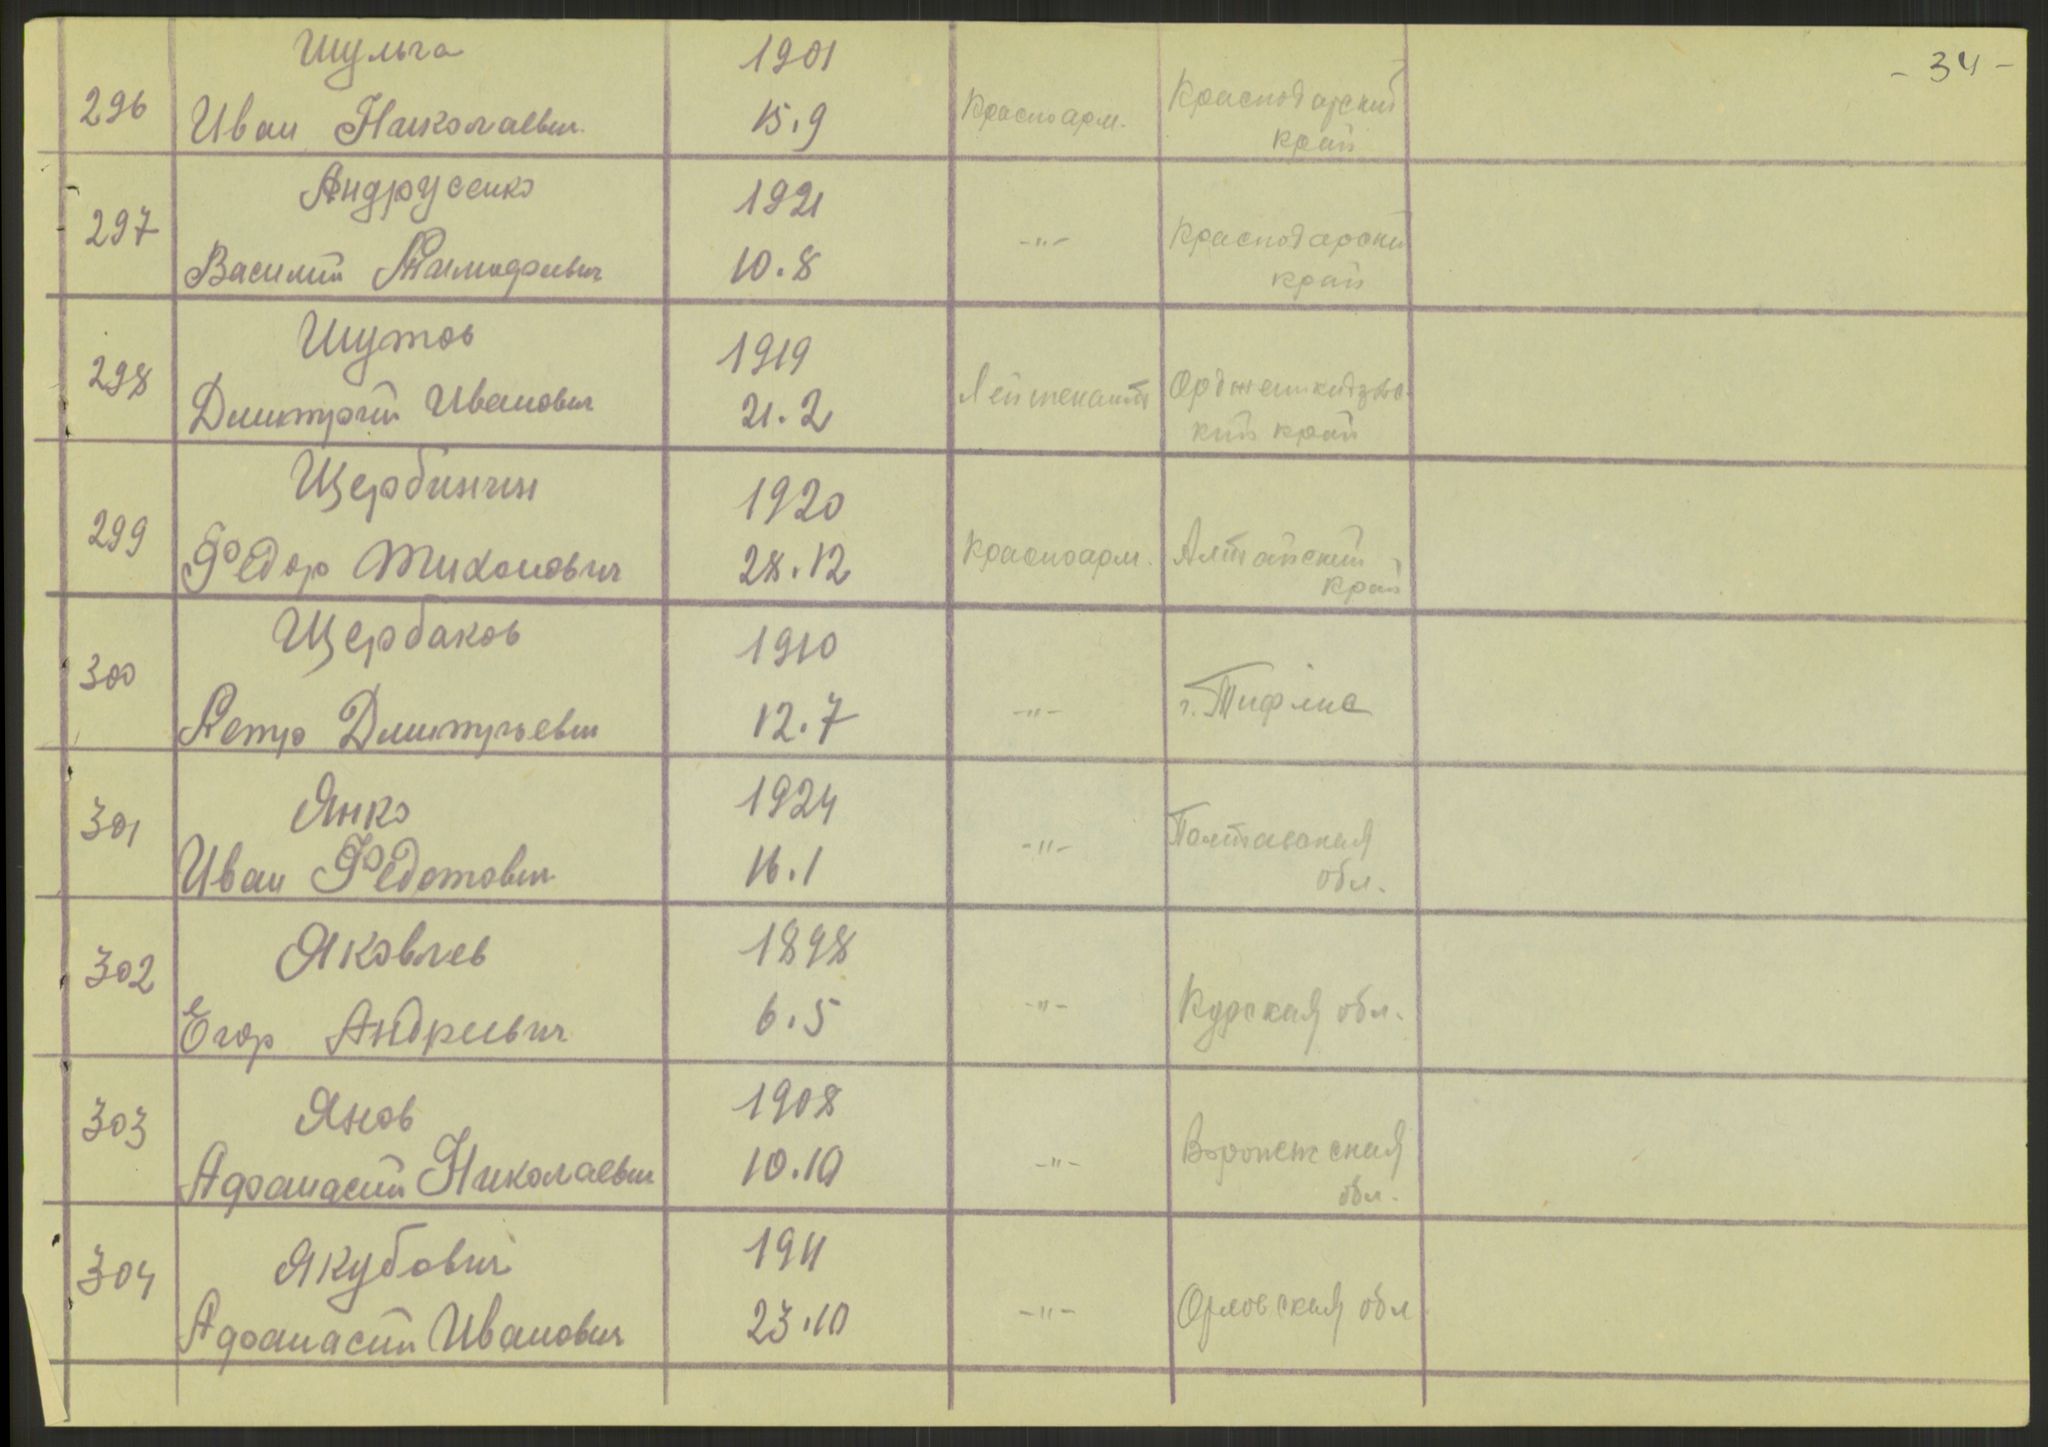 - 34 -
Шульга 1901
296 Иван Николаевич 15.9 Красноарм. Краснодарский
край
Андрусенко 1921
297 Василий 10.8 -"- Краснодарский
край
Шутов 1919
298 Дмитрий Иванович 21.2 Лейтенант Орджоникидзевс-
кий край
Щербинин 1920
299 Федор Тихонович 28.12 Красноарм. Алтайский
край
Щербаков 1910
300 Петр Дмитриевич 12.7 -"- г. Тифлис
Янко 1924
301 Иван Федотович 16.1 -"- Полтавская
обл.
Яковлев 1898
302 Егор Андреевич 6.5 -"- Курская обл.
Янов 1908
303 Афанасий Николаевич 10.10 -"- Воронежская
обл.
Якубович 1911
304 Афанасий Иванович 23.10 -"- Орловская обл